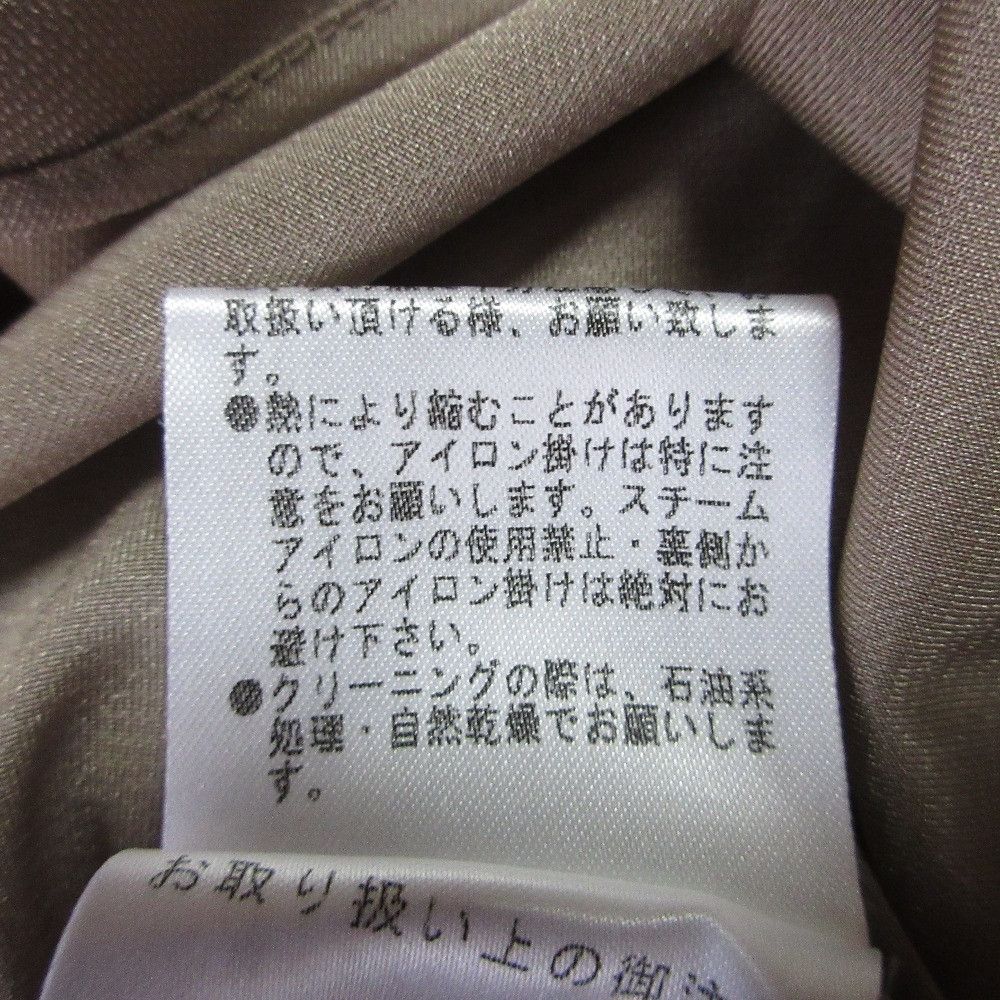 取扱い頂ける様、お願い致しま
す。
●熱により縮むことがあります
ので、アイロン掛けは特に注
意をお願いします。スチーム
アイロンの使用禁止・裏側か
らのアイロン掛けは絶対にお
避け下さい。
●クリーニングの際は、石油系
処理・自然乾燥でお願いしま
す。
お取り扱い上の御注